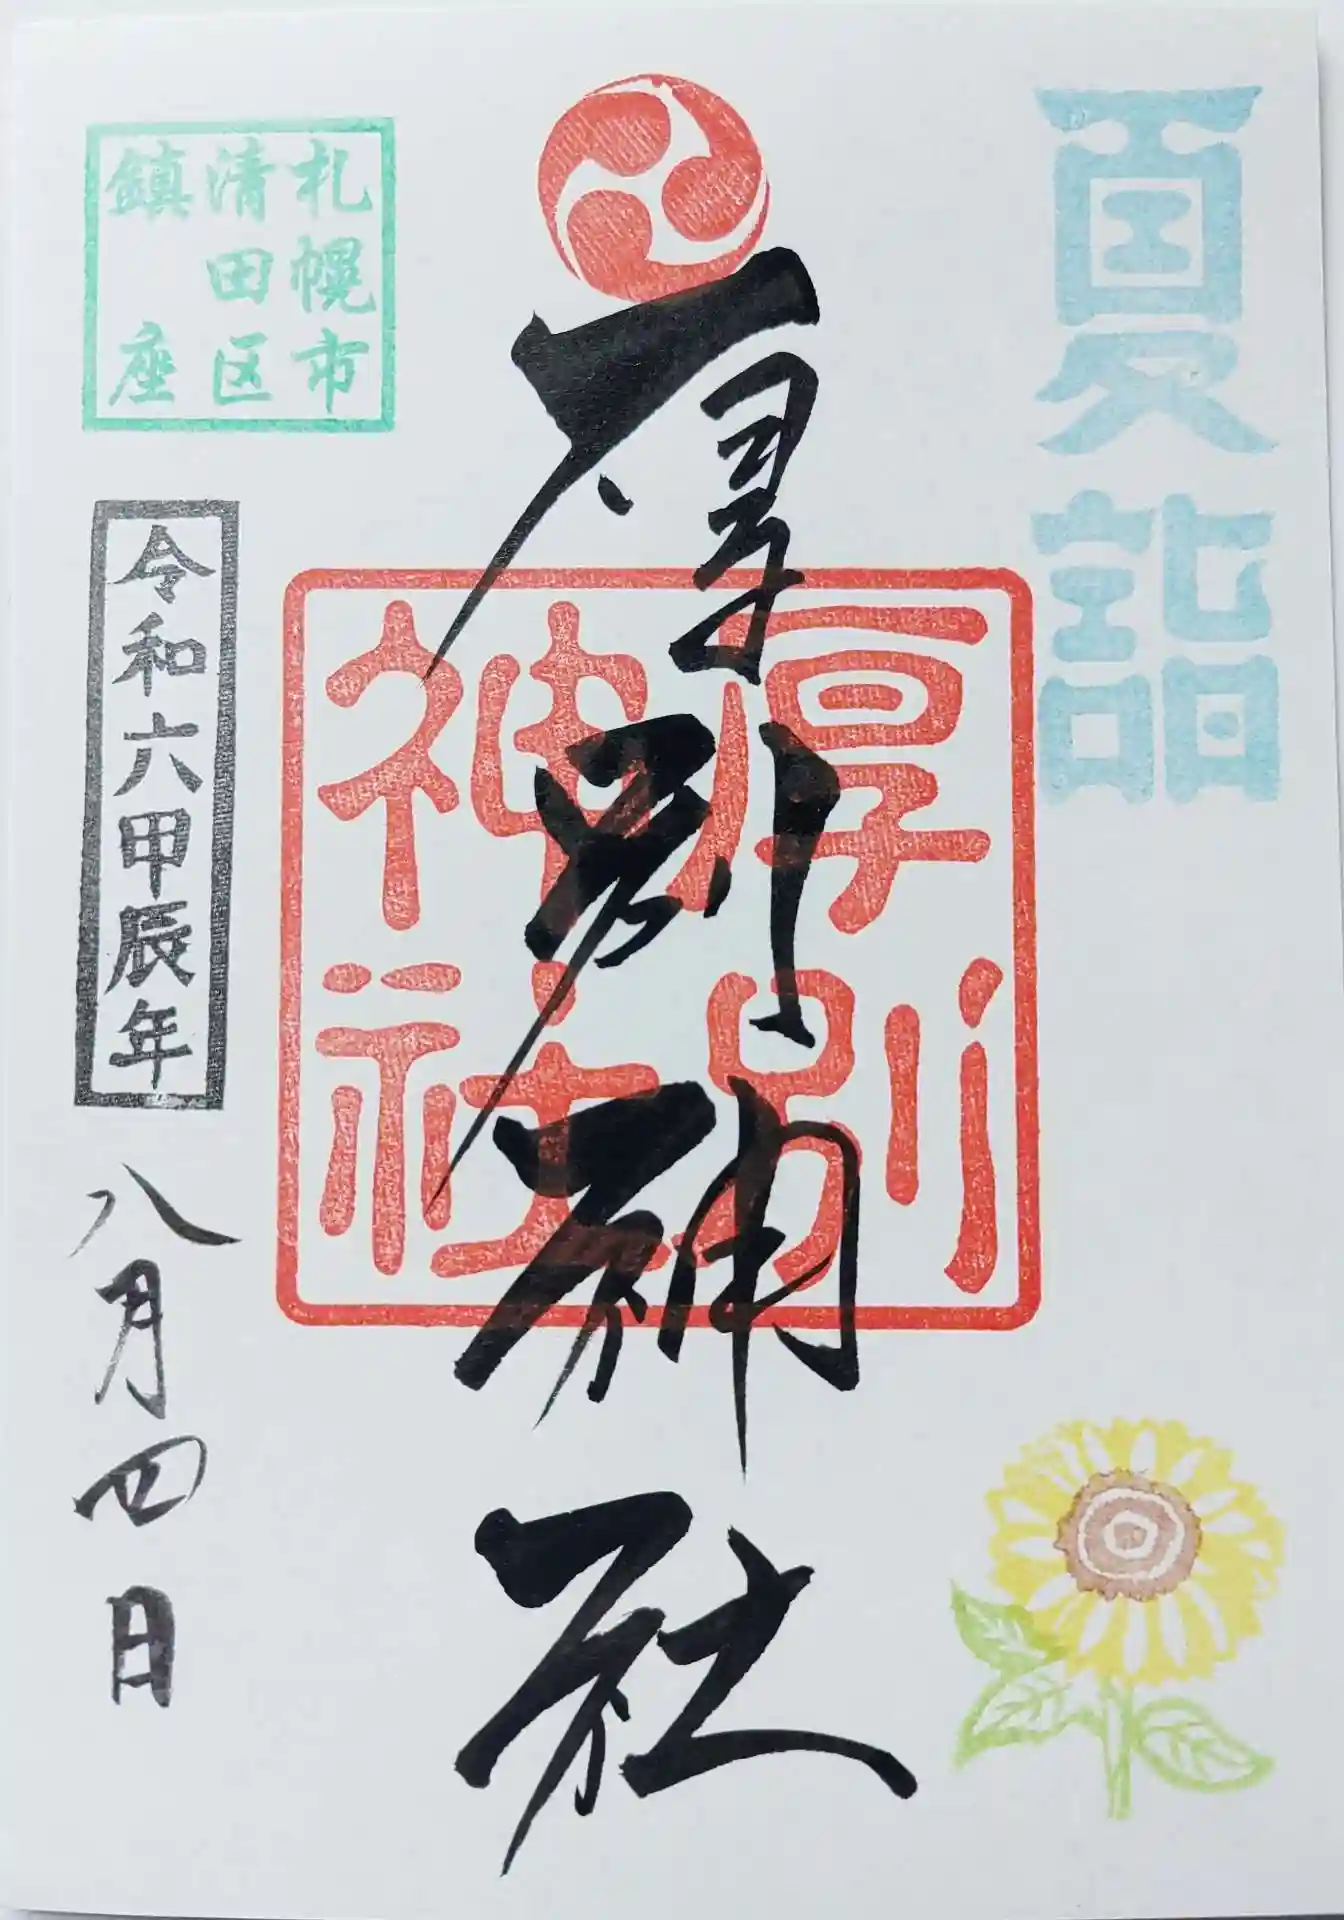 夏詣
厚別神社
厚別
神社
札幌市
清田区
鎮座
令和六甲辰年
八月四日